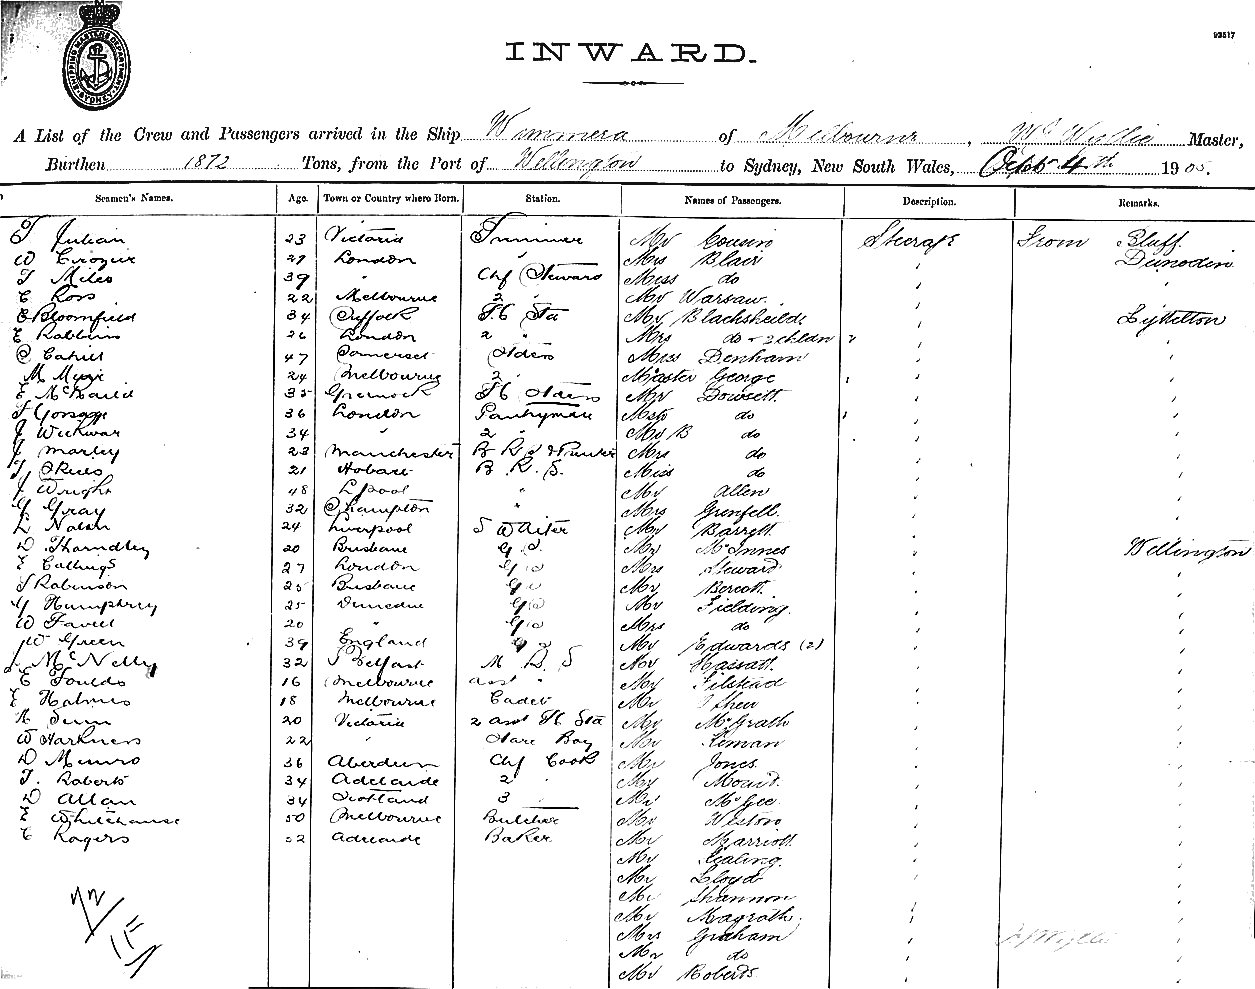 SHIPPING MASTERS DEPARTMENT SYDNEY
93517
INWARD.
A List of the Crew and Passengers arrived in the Ship Wimmera of Melbourne, Wyllie Master,
Burthen 1872 Tons, from the Port of Wellington to Sydney, New South Wales, Octob 4th 1905.
Seamen's Names. Age. Town or Country where Born. Station. Names of Passengers. Description. Remarks.
T Julian 23 Victoria Trimmer Mr Cousin Steerage From Bluff
W Crozier 27 London " Mrs Blair " Dunedin
T Miles 39 " Chf Steward Miss do " "
C Ross 22 Melbourne 2 " Mr Warsaw " "
E Bloomfield 34 Suffolk F C Sta Mr Blacksheild " Lyttelton
E Robbins 26 London 2 " Mrs do + 2 chldn " "
C Cahill 47 Somerset Stdess Miss Denham " "
M Muir 24 Melbourne 2 " Master George " "
E McDauld 35 Greenock F C Stdess Mr Dowsett " "
T 36 London Pantryman do " "
J Wickwar 34 " 2 " Mr B do " "
J Marley 23 Manchester B R S Mrs do " "
T 21 Hobart B. R. S. Miss do " "
J Wright 48 L'pool " Mr Allen " "
G Gray 32 S'hampton " Mrs Grenfell " "
L Nolan 24 Liverpool S Waiter Mr Barrett " "
D Thorndley 20 Brisbane G. S. Mr McInnes " Wellington
E Collings 27 London Mrs Steward " "
T Robinson 25 Brisbane Mr " "
G Humphrey 25 Dunedin Mr Fielding " "
W Favell 20 " Mrs do " "
W Green 39 England Mr Edwards (2) " "
J McNelly 32 Belfast M S Mr Hassatt " "
E Foulds 16 Melbourne asst " Mr Filstead " "
E Holmes 18 Melbourne Cadet Mr " "
H 20 Victoria 2 asst F. Sta Mr McGrath " "
W Harkness 22 " Store Boy Mr " "
D Munro 36 Aberdeen Chf Cook Mr Jones " "
T. Roberts 34 Adelaide 2 " Mr Mount " "
D Allan 34 Scotland 3 " Mr McGee " "
E Whitehouse 50 Melbourne Butcher Mr Weston " "
C Rogers 52 Adelaide Baker Mr Marriott " "
Mr " "
Mr Lloyd " "
Mr Shannon " "
72 Mr Magrath " "
Mrs Graham " Wyllie
Mr do " "
Mr Roberts " "